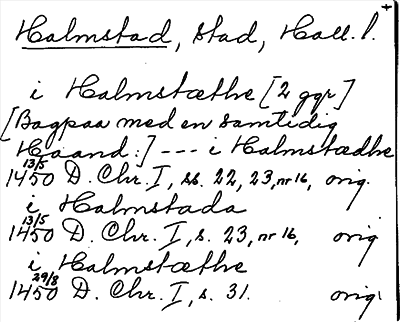 Halmstad, stad, Hall. l. +
i Halmstæthe [2 ggr]
[Bagpaa med en samtidig
Haand:] --- i Halmstædhe
13/5 1450 D. Chr. I, ss. 22, 23, nr 16, orig.
i Halmstada
13/5 1450 D. Chr. I, s. 23, nr 16, orig
i Halmstæthe
29/8 1450 D. Chr. I, s. 31. orig.